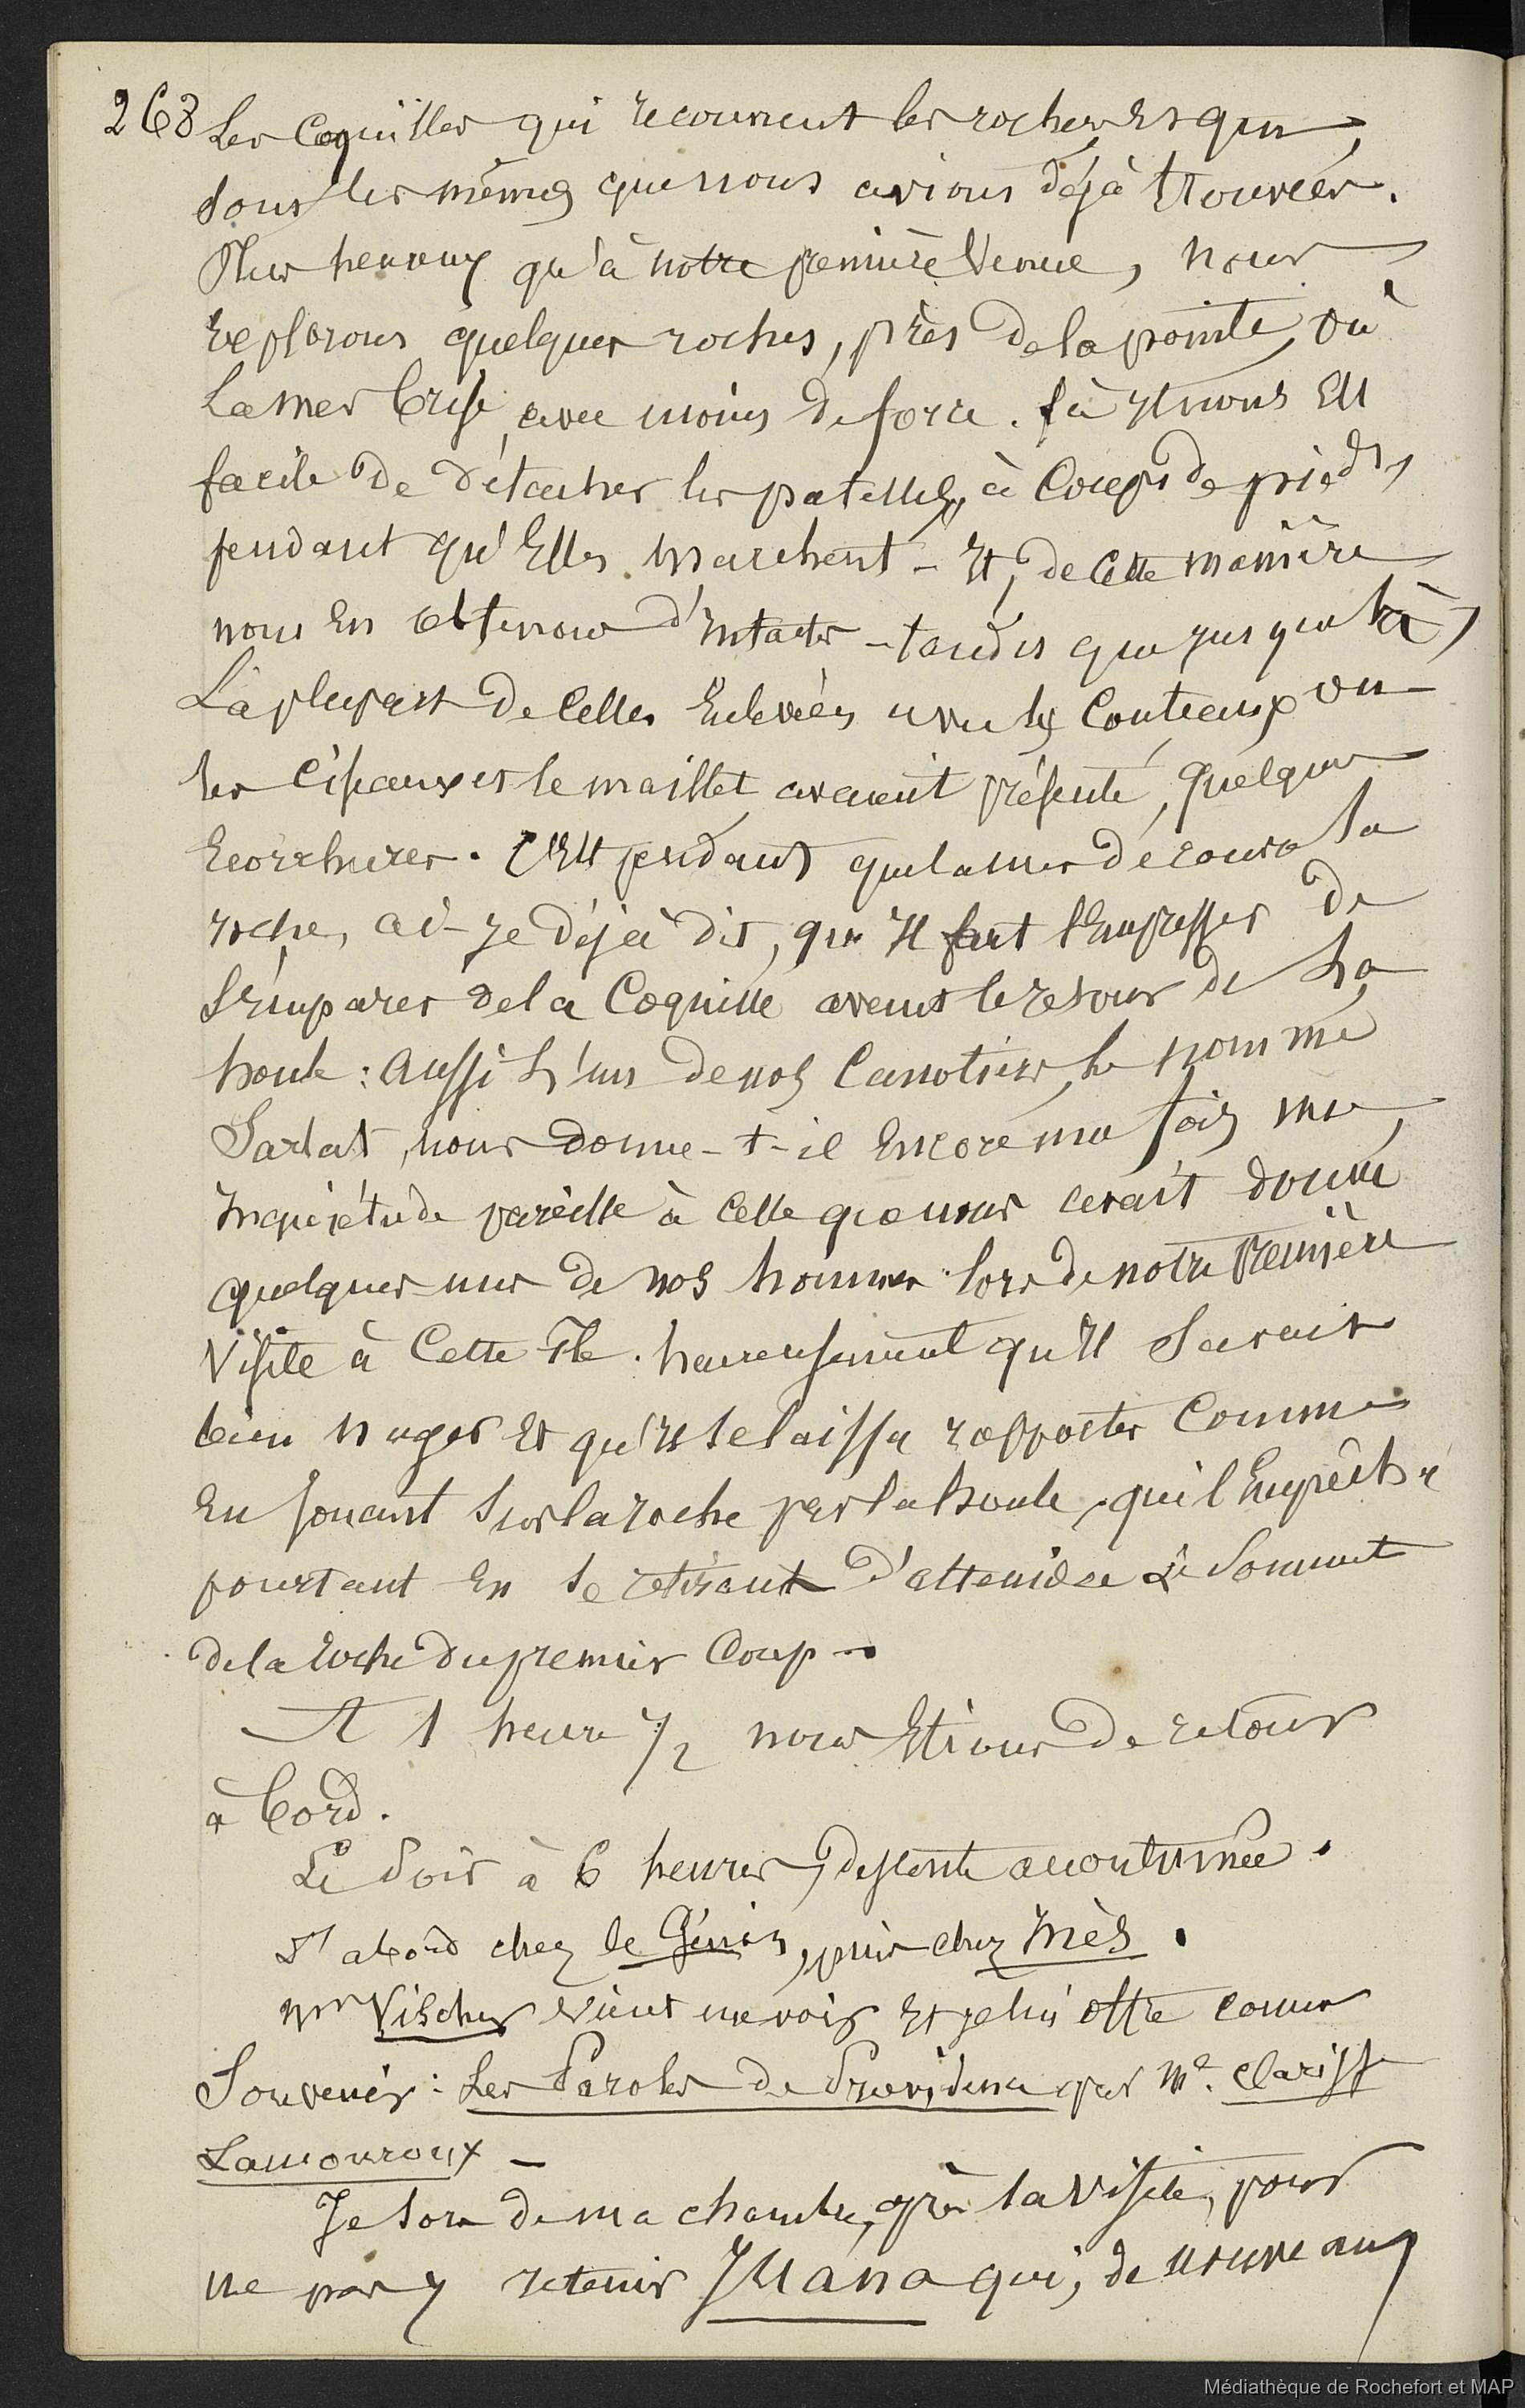 268 Les Coquilles qui recouvrent les roches Et qui
sont les mêmes que nous avions déjà trouvées.
Plus heureux qu'à notre première venue, nous
explorons quelques roches, près de la pointe, où
La mer brise avec moins de force. Là Il nous Est
facile de détacher les patelles, à Coups de pieds,
pendant qu'Elles marchent - Et, de Cette manière
nous En obtenons d'Intactes - tandis que jusque là,
La plupart de Celles Enlevées avec les Couteaux ou
les Ciseaux et le maillet avaient présenté quelques
Ecorchures. C'Est pendant que la mer découvre la
roche, ai-je déjà dit, qu'Il faut s'Empresser de
s'Emparer de la Coquille avant le retour de la
houle : Aussi l'un de nos Canotiers, le nommé
Sarlat, nous donne-t-il Encore une fois une
Inquiétude pareille à Celle que nous avait donné
quelques-uns de nos hommes lors de notre première
Visite à Cette Ile. heureusement qu'Il Savait
bien nager Et qu'Il se laissa rapporter Comme
En jouant sur la roche par la houle, qui l'Empêcha
pourtant En se retirant d'atteindre Le Sommet
de la roche du premier Coup -
A 1 heure 1/2 nous Etions de retour
à bord.
Le Soir à 6 heures, descente accoutumée.
D'abord chez le Génin, puis chez Inès.
Mr Vischer vient me voir Et je lui offre comme
Souvenir : Les Paroles de Providence par Me. Clarisse
Lamouroux -
Je sors de ma chambre, après la Visite, pour
ne pas y retenir Juana qui, de nouveau,
Médiathèque de Rochefort et MAP